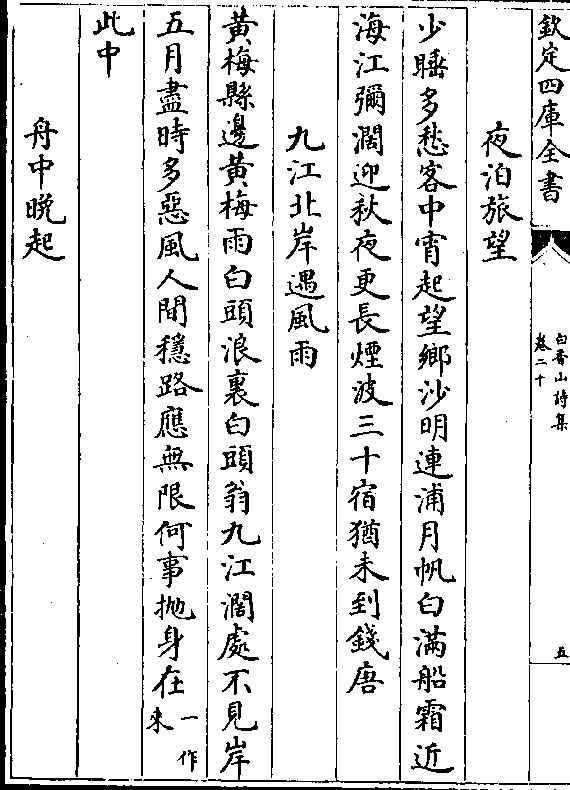 欽定四庫全書
白香山詩集
卷二十
五
夜泊旅望
少睡多愁客中宵起望鄉沙明連浦月帆白滿船霜近
海江彌濶迎秋夜更長煙波三十宿猶未到錢唐
九江北岸遇風雨
黃梅縣邊黃梅雨白頭浪裏白頭翁九江濶處不見岸
五月盡時多惡風人間穩路應無限何事抛身在一作來
此中
舟中晚起